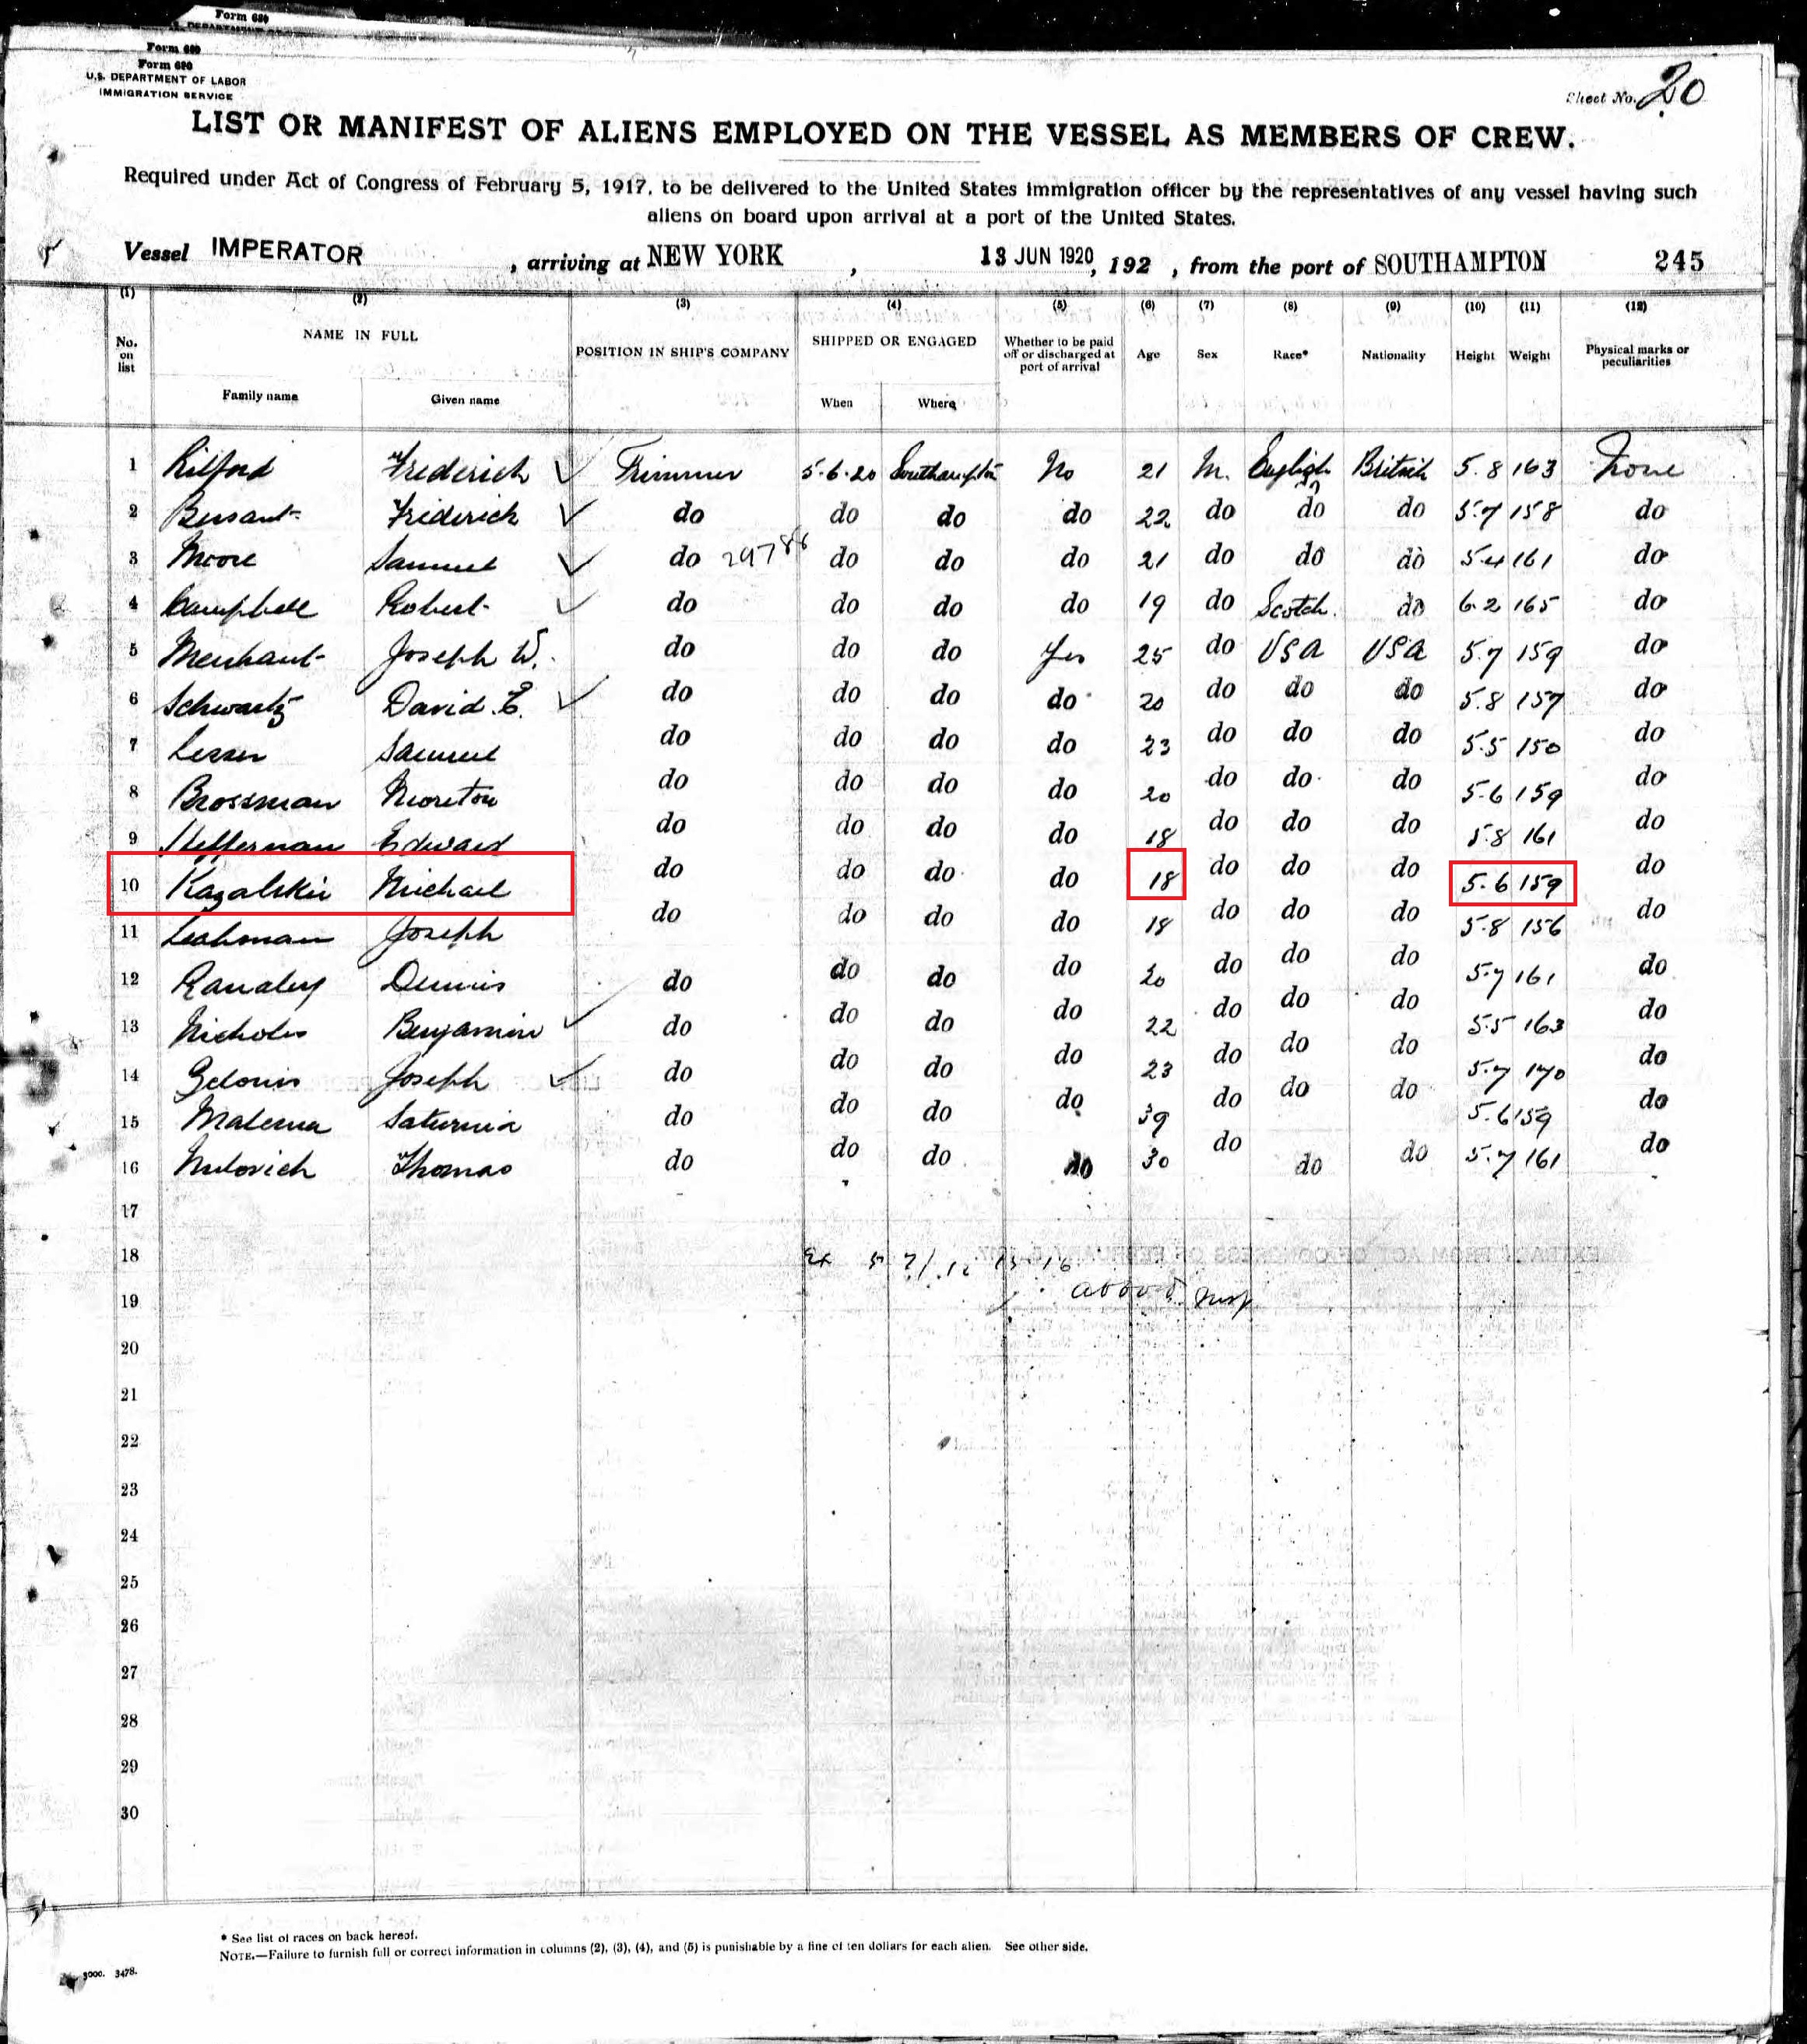 Form 680
U.S. DEPARTMENT
Form 680
Form 680
U.S. DEPARTMENT OF LABOR
IMMIGRATION SERVICE
Sheet No. 20
LIST OR MANIFEST OF ALIENS EMPLOYED ON THE VESSEL AS MEMBERS OF CREW.
Required under Act of Congress of February 5, 1917, to be delivered to the United States immigration officer by the representatives of any vessel having such
aliens on board upon arrival at a port of the United States.
Vessel IMPERATOR, arriving at NEW YORK, 13 JUN 1920, 192 , from the port of SOUTHAMPTON 245
(1) (2) (3) (4) (5) (6) (7) (8) (9) (10) (11) (12)
No. on list NAME IN FULL POSITION IN SHIP'S COMPANY SHIPPED OR ENGAGED Whether to be paid off or discharged at port of arrival Age Sex Race* Nationality Height Weight Physical marks or peculiarities
Family name Given name When Where
1 Rilford Frederick Trimmer 5.6.20 Southampton No 21 M. English British 5.8 163 None
2 Bessant Friderick do do do do 22 do do do 5.7 158 do
3 Moore Samuel do 29786 do do do 21 do do do 5.4 161 do
4 Campbell Robert do do do do 19 do Scotch. do 6.2 165 do
5 Merchant Joseph W. do do do Yes 25 do USA USA 5.7 159 do
6 Schwartz David. E. do do do do 20 do do do 5.8 157 do
7 Lesser Samuel do do do do 23 do do do 5.5 150 do
8 Brossman Moreton do do do do 20 do do do 5.6 159 do
9 Heffernan Edward do do do do 18 do do do 5.8 161 do
10 Kazalskie Michael do do do do 18 do do do 5.6 159 do
11 Leahman Joseph do do do do 18 do do do 5.8 156 do
12 Dennis do do do do 20 do do do 5.7 161 do
13 Nicholes Benjamin do do do do 22 do do do 5.5 163 do
14 Joseph do do do do 23 do do do 5.7 170 do
15 Materna Saturnia do do do do 39 do do do 5.6 159 do
16 Milovich Thomas do do do do 30 do do do 5.7 161 do
17
18 Ex 5
19
20
21
22
23
24
25
26
27
28
29
30
* See list of races on back hereof.
NOTE.—Failure to furnish full or correct information in columns (2), (3), (4), and (5) is punishable by a fine of ten dollars for each alien. See other side.
3000. 3478.